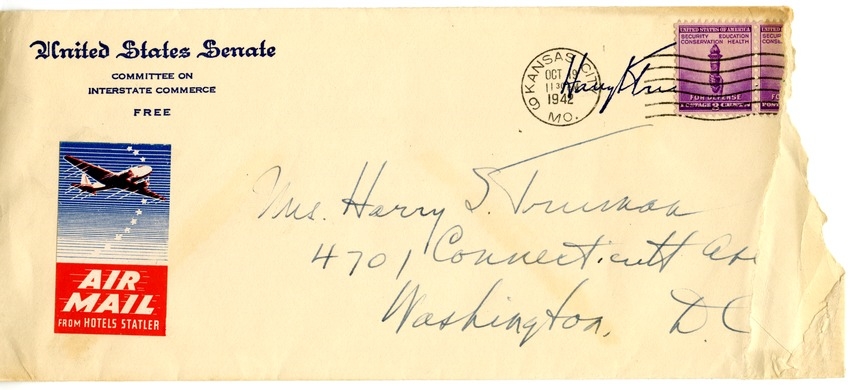 United States Senate
COMMITTEE ON
INTERSTATE COMMERCE
FREE
KANSAS CITY
OCT 19
1942
MO.
Harry S Tru
UNITED STATES OF AMERICA
SECURITY EDUCATION
CONSERVATION HEALTH
FOR DEFENSE
POSTAGE 3 CENTS
UNITED STATES
SECUR
CONSE
FO
POST
Mrs. Harry S. Truman
4701 Connecticutt Ave
Washington, D.C
AIR
MAIL
FROM HOTELS STATLER